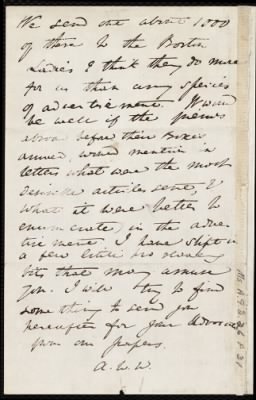 We send out about 1000
of these to the Boston
Ladies & I think they do more
for us than any species
of advertisement. It would
be well if the
abroad before their Boxes
arrived, would mention in
letters what were the most
desirable articles sent, &
what it were better to
enumerate, in the adver-
tisement. I have slipt in
a few little pro slavery
bits that may amuse
you. I will try to find
something to send you
hereafter for your Advocate
from our papers.
A. W. W.